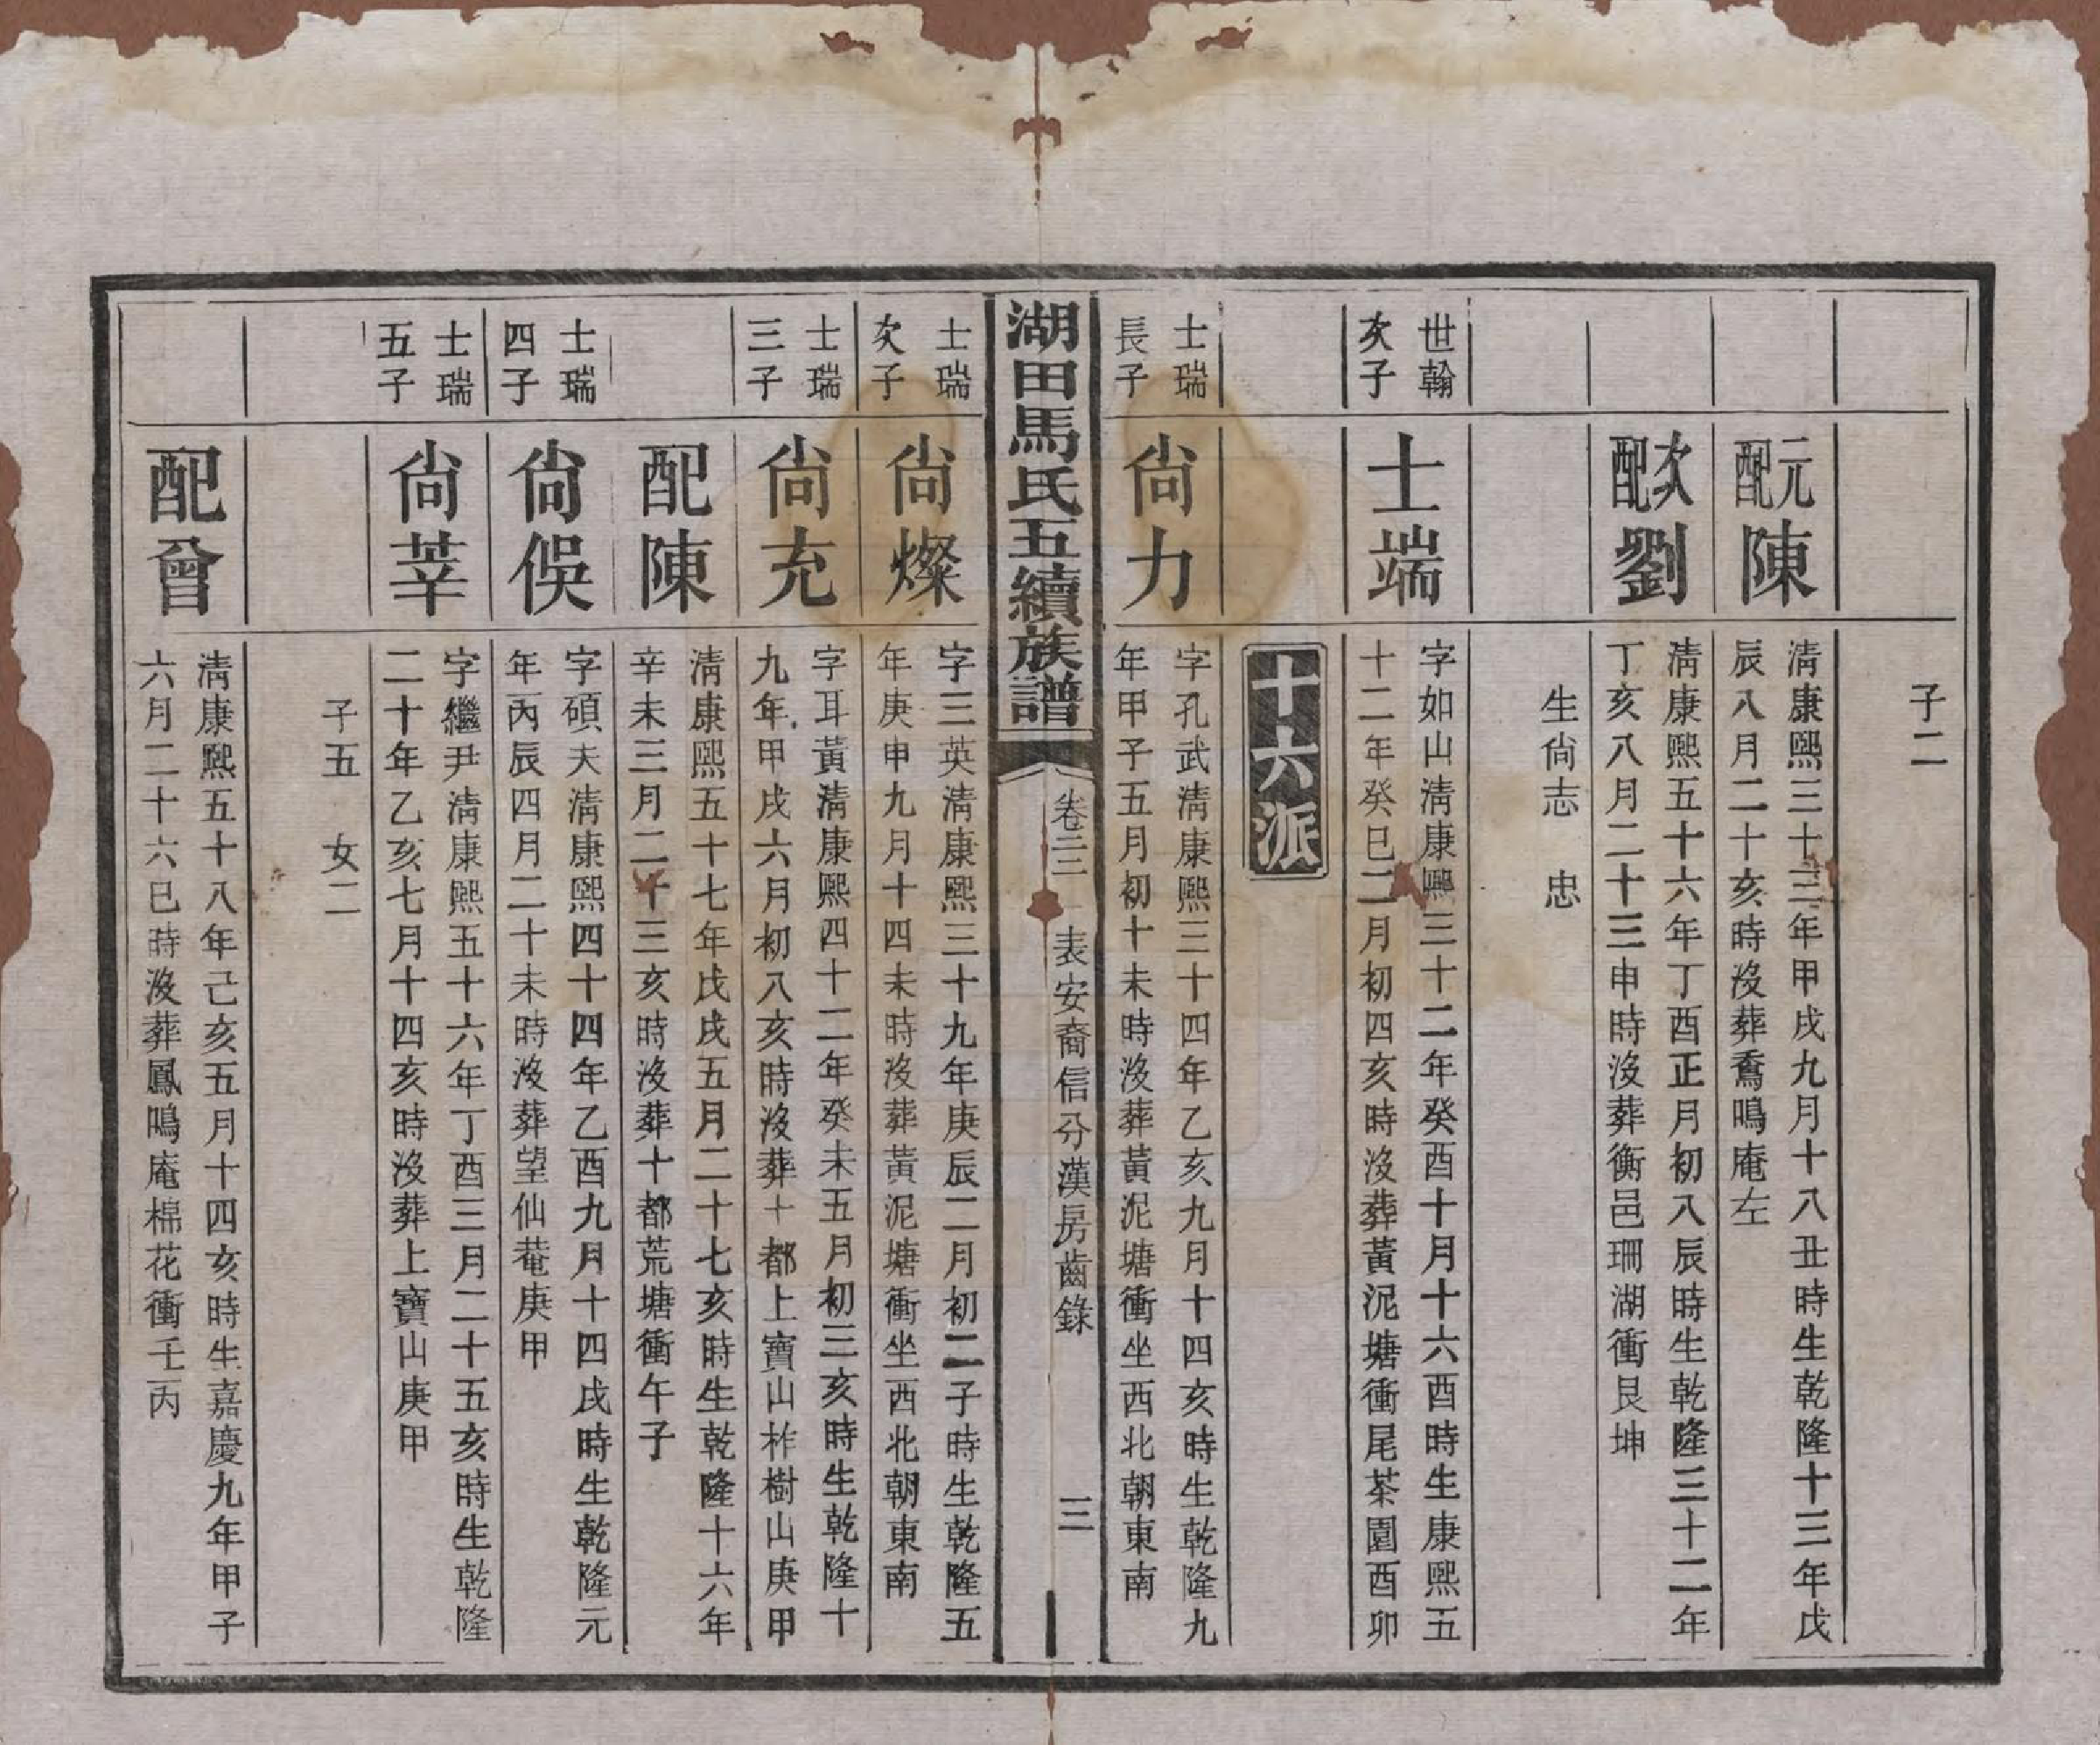 子二
元配陳
清康熙三十三年甲戌九月十八丑時生乾隆十三年戊
辰八月二十亥時沒葬鳳鳴庵左
次配劉
清康熙五十六年丁酉正月初八辰時生乾隆三十二年
丁亥八月二十三申時沒葬衡邑珊湖衝艮坤
生尙志　忠
世翰
次子
士端
字如山清康熙三十二年癸酉十月十六酉時生康熙五
十二年癸巳二月初四亥時沒葬黃泥塘衝尾茶園酉卯
十六派
士瑞
長子
尙力
字孔武清康熙三十四年乙亥九月十四亥時生乾隆九
年甲子五月初十未時沒葬黃泥塘衝坐西北朝東南
湖田馬氏五續族譜
卷三二
表安裔信分漢房齒錄
三
士瑞
次子
尙燦
字三英清康熙三十九年庚辰二月初二子時生乾隆五
年庚申九月十四未時沒葬黃泥塘衝坐西北朝東南
士瑞
三子
尙充
字耳黃清康熙四十二年癸未五月初三亥時生乾隆十
九年甲戌六月初八亥時沒葬十都上寶山柞樹山庚甲
配陳
清康熙五十七年戊戌五月二十七亥時生乾隆十六年
辛未三月二十三亥時沒葬十都荒塘衝午子
士瑞
四子
尙俁
字碩夫清康熙四十四年乙酉九月十四戌時生乾隆元
年丙辰四月二十未時沒葬望仙菴庚甲
士瑞
五子
尙莘
字繼尹清康熙五十六年丁酉三月二十五亥時生乾隆
二十年乙亥七月十四亥時沒葬上寶山庚甲
子五　女二
配曾
清康熙五十八年己亥五月十四亥時生嘉慶九年甲子
六月二十六巳時沒葬鳳鳴庵棉花衝壬丙